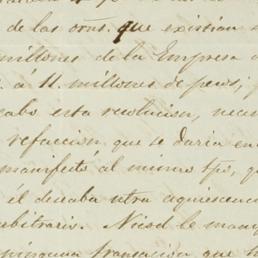 de las ovns. que existian
millones de la Empresa
á 11. millones de pesos;
cabo esta resolucion,
refaccion que se daria en
manifestó al mismo tpo, que
él deseaba otra aquiescenc
arbitrario. Nicod le man
ninguna transacion que